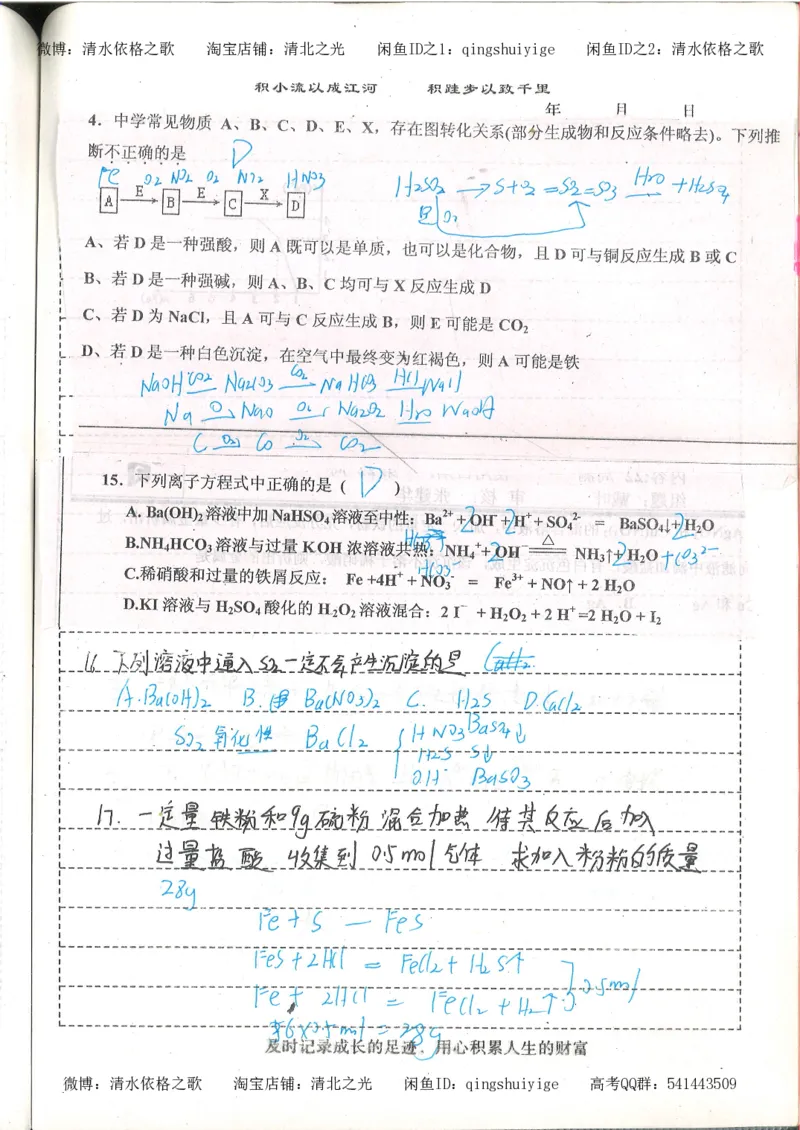 微博：清水依格之歌 淘宝店铺：清北之光 闲鱼ID之1：qingshuiyige 闲鱼ID之2：清水依格之歌
积小流以成江河 积跬步以致千里
年 月 日
4．中学常见物质 A、B、C、D、E、X，存在图转化关系(部分生成物和反应条件略去)。下列推
断不正确的是 D
Fe O2 NO2 O2 NO2 HNO3
A E B E C X D
H2SO3 → S+O2 = SO2 = SO3 H2O + H2SO4
O2
A、若 D 是一种强酸，则 A 既可以是单质，也可以是化合物，且 D 可与铜反应生成 B 或 C
B、若 D 是一种强碱，则 A、B、C 均可与 X 反应生成 D
C、若 D 为 NaCl，且 A 可与 C 反应生成 B，则 E 可能是 CO2
D、若 D 是一种白色沉淀，在空气中最终变为红褐色，则 A 可能是铁
NaOH CO2 Na2CO3 CO2 NaHCO3 HCl NaCl
Na O2 Na2O O2 Na2O2 H2O NaOH
C O2 CO O2 CO2
15．下列离子方程式中正确的是（ D ）
A. Ba(OH)2 溶液中加 NaHSO4 溶液至中性：Ba2+ + 2OH- + 2H+ + SO42- = BaSO4↓ + 2H2O
B.NH4HCO3 溶液与过量 KOH 浓溶液共热：HCO3- NH4+ + 2OH- △ NH3↑ + 2H2O + CO32-
C.稀硝酸和过量的铁屑反应： Fe +4H+ + NO3- = Fe3+ + NO↑ + 2 H2O
D.KI 溶液与 H2SO4 酸化的 H2O2 溶液混合：2 I- + H2O2 + 2 H+ =2 H2O + I2
16 下列溶液中通入SO2一定不会产生沉淀的是
A. Ba(OH)2 B. Ba(NO3)2 C. H2S D. CaCl2
SO2 氧化性 BaCl2 HNO3 BaSO4↓
H2S S↓
OH- BaSO3
17. 一定量铁粉和9g硫粉混合加热 待其反应后加入
过量盐酸 收集到 0.5mol气体 求加入粉粉的质量
28g
Fe + S — FeS
FeS + 2HCl = FeCl2 + H2S↑
Fe + 2HCl = FeCl2 + H2↑ 0.5mol
56×0.5mol = 28g
及时记录成长的足迹，用心积累人生的财富
微博：清水依格之歌 淘宝店铺：清北之光 闲鱼ID：qingshuiyige 高考QQ群：541443509